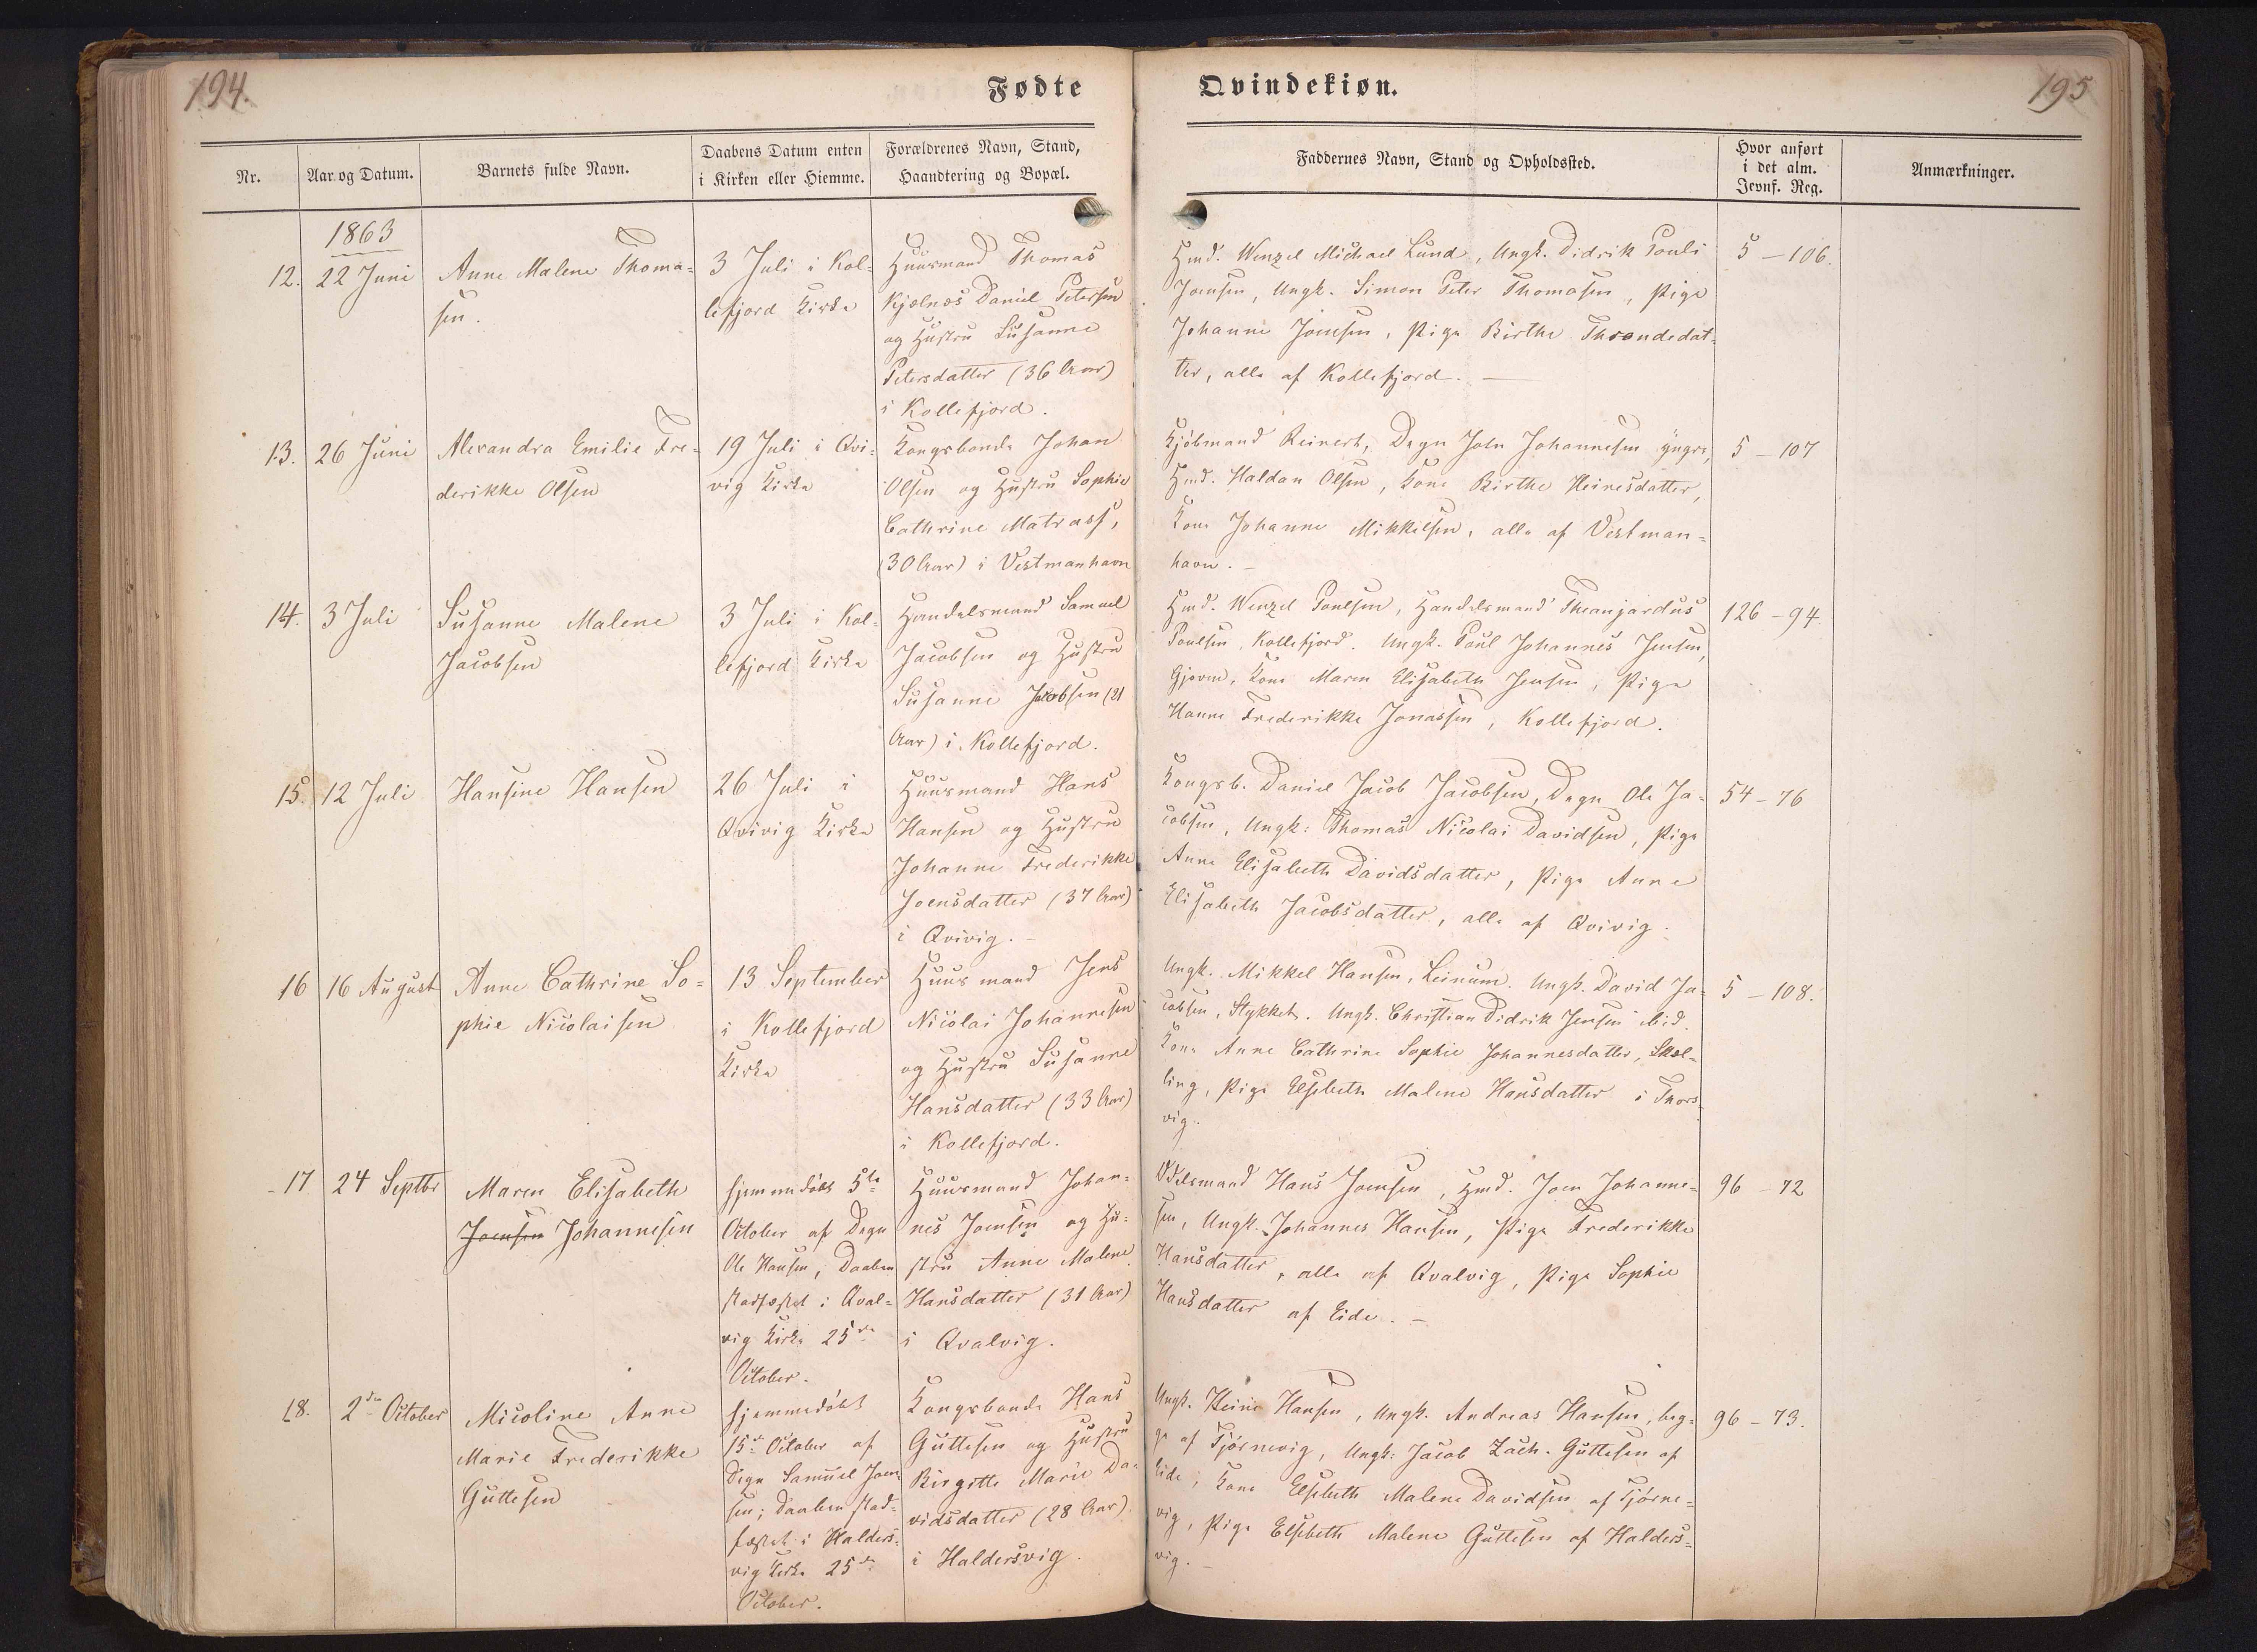 194.
Fødte
Nr.
Aar og Datum.
Barnets fulde Navn.
Daabens Datum enten
i Kirken eller Hiemme.
Forældrenes Navn, Stand,
Haandtering og Bopæl.
1863
12.
22 Juni
Anne Malene Thoma-
sen.
3 Juli i Kol-
lefjord Kirke
Huusmand Thomas
Kjelnæs Daniel Petersen
og Hustru Susanne
Petersdatter (36 Aar)
i Kollefjord.
13.
26 Juni
Alexandra Emilie Fre-
derikke Olsen
19 Juli i Qvi-
vig Kirke
Kongsbonde Johan
Olsen og Hustru Sophie
Cathrine Matrass,
(30 Aar) i Vestmanhavn
14.
3 Juli
Susanne Malene
Jacobsen
3 Juli i Kol-
lefjord Kirke
Handelsmand Samuel
Jacobsen og Hustru
Susanne Jakobsen (21
Aar) i Kollefjord.
15.
12 Juli
Hansine Hansen
26 Juli i
Qvivig Kirke
Huusmand Hans
Hansen og Hustru
Johanne Frederikke
Joensdatter (37 Aar)
i Qvivig.
16
16 August
Anne Cathrine So-
phie Nicolaisen
13 September
i Kollefjord
Kirke
Huusmand Jens
Nicolai Johannesen
og Hustru Susanne
Hansdatter (33 Aar)
i Kollefjord.
17
24 Septbr
Maren Elisabeth
Joensen Johannesen
hjemmedøbt 5te
October af Degn
Ole Hansen, Daaben
stadfæstet i Qval-
vig Kirke 25de
October.
Huusmand Johan-
nes Joensen og Hu-
stru Anne Malene
Hansdatter (31 Aar)
i Qvalvig.
18.
2den October
Nicoline Anne
Marie Frederikke
Guttesen
hjemmedøbt
15de October af
Degn Samuel Joen-
sen; Daaben stad-
fæstet i Halders-
vig Kirke 25de
October.
Kongsbonde Hans
Guttesen og Hustru
Birgitte Marie Da-
vidsdatter (28 Aar)
i Haldersvig.
Qvindekiøn.
195
Faddernes Navn, Stand og Opholdssted.
Hvor anført
i det alm.
Jevnf. Reg.
Anmærkninger.
Hmd. Wenzel Michael Lund, Ungk. Didrik Pouli
Joensen, Ungk. Simon Peter Thomasen, Pige
Johanne Joensen, Pige Birthe Throndedat-
ter, alle af Kollefjord.
5 – 106.
Kjøbmand Reinert, Degn John Johannesen yngre,
Hmd. Haldan Olsen, Kone Birthe Heinesdatter,
Kone Johanne Mikkelsen, alle af Vestman-
havn.
5 – 107
Hmd. Wenzel Poulsen, Handelsmand Theanjardus
Poulsen, Kollefjord. Ungk. Poul Johannes Jensen,
Gjoven, Kone Maren Elisabeth Jensen, Pige
Hanne Frederikke Jonassen, Kollefjord.
126 – 94
Kongsb. Daniel Jacob Jacobsen, Degn Ole Ja-
cobsen, Ungk: Thomas Nicolai Davidsen, Pige
Anne Elisabeth Davidsdatter, Pige Anne
Elisabeth Jacobsdatter, alle af Qvivig.
54 – 76
Ungk. Mikkel Hansen, Leinum. Ungk. David Ja-
cobsen, Stykket. Ungk. Christian Didrik Jensen ibid.
Kone Anne Cathrine Sophie Johannesdatter, Skæl-
ling, Pige Elsebeth Malene Hansdatter i Thors-
vig.
5 – 108.
Odelsmand Hans Joensen, Hmd. Joen Johanne-
sen, Ungk. Johannes Hansen, Pige Frederikke
Hansdatter, alle af Qvalvig, Pige Sophie
Hansdatter af Eide.
96 – 72
Ungk. Heine Hansen, Ungk. Andreas Hansen, beg-
ge af Tjørnevig, Ungk: Jacob Zach. Guttesen af
Eide, Kone Elsebeth Malene Davidsen af Tjørne-
vig, Pige Elsebeth Malene Guttesen af Halders-
vig.
96 – 73.